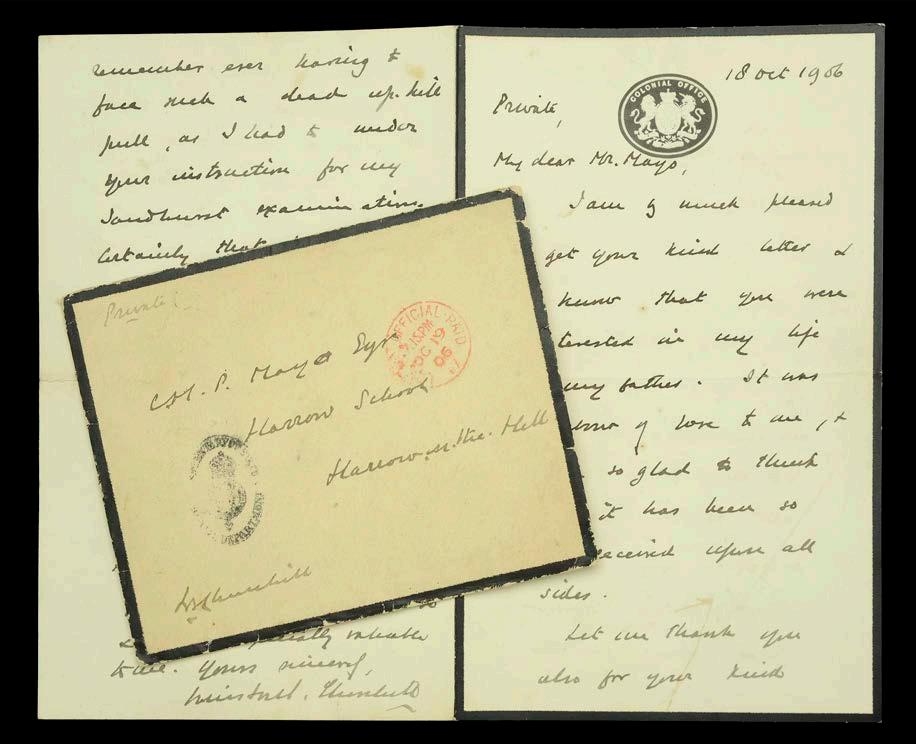 18 Oct 1906
COLONIAL OFFICE
Private,
My dear Mr. Mayo,
I am so much pleased
get your kind letter &
know that you were
terested in my life
my father. It was
bour of love to me, &
so glad to think
it has been so
eceived upon all
sides.
Let me thank you
also for your kind
remember ever having to
face such a dead up-hill
pull, as I had to under
your instruction for my
Sandhurst examination.
Certainly that
so
ally valuable
to me. Yours sincerely,
Winston S. Churchill
Private
OFFICIAL PAID
7.15PM
OC 19
06
C.H.P. Mayo Esqr
Harrow School
Harrow on the Hill
DEPARTMENT
WSChurchill